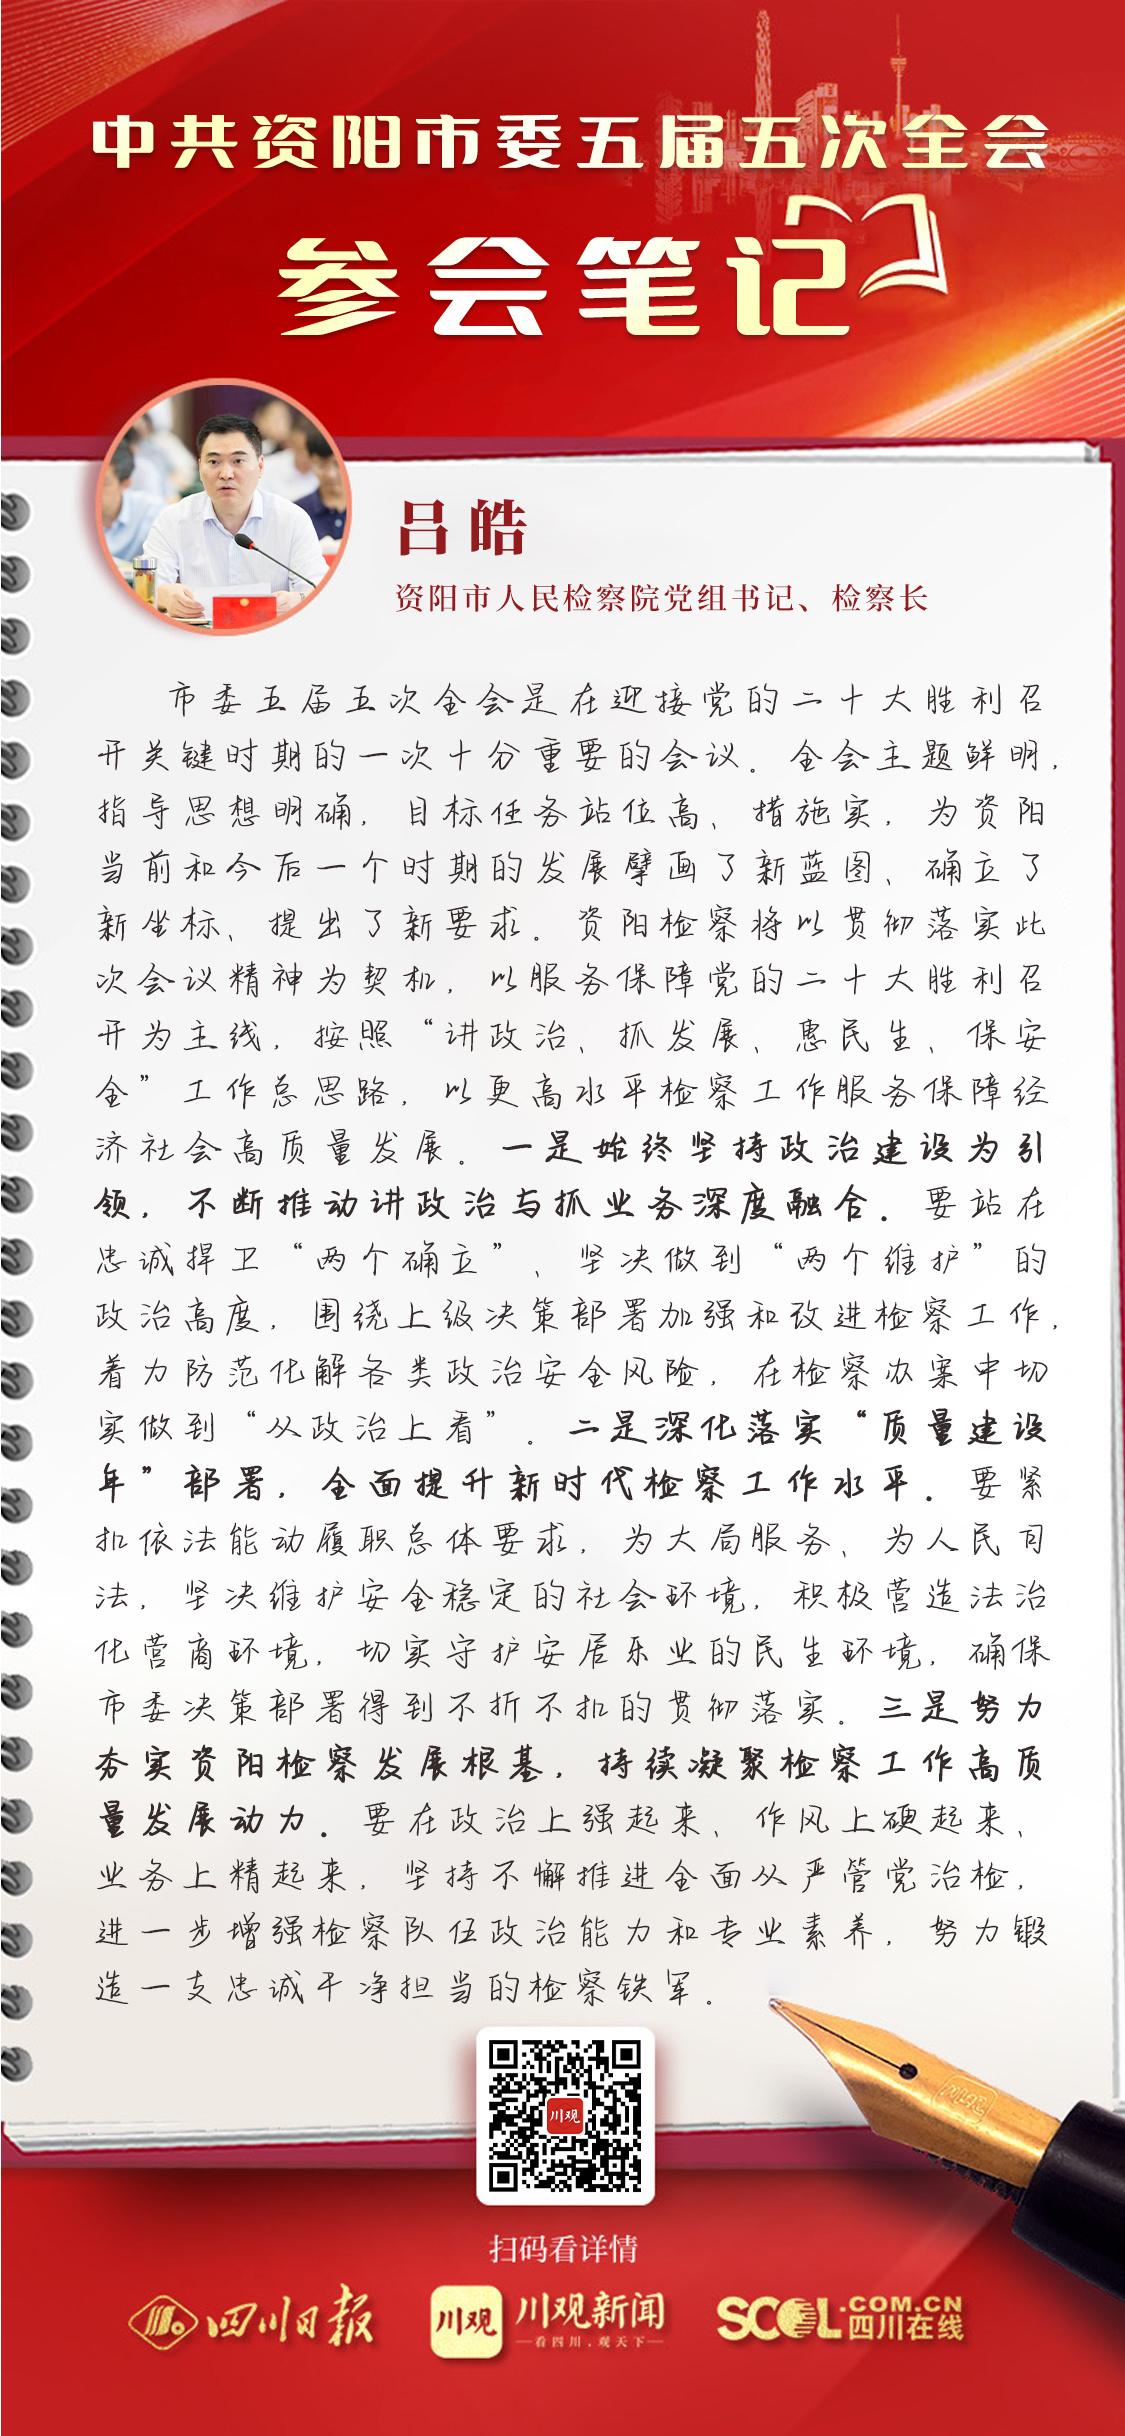 中共资阳市委五届五次全会
参会笔记
吕皓
资阳市人民检察院党组书记、检察长
市委五届五次全会是在迎接党的二十大胜利召
开关键时期的一次十分重要的会议。全会主题鲜明，
指导思想明确，目标任务站位高、措施实，为资阳
当前和今后一个时期的发展擘画了新蓝图、确立了
新坐标、提出了新要求。资阳检察将以贯彻落实此
次会议精神为契机，以服务保障党的二十大胜利召
开为主线，按照“讲政治、抓发展、惠民生、保安
全”工作总思路，以更高水平检察工作服务保障经
济社会高质量发展。一是始终坚持政治建设为引
领，不断推动讲政治与抓业务深度融合。要站在
忠诚捍卫“两个确立”、坚决做到“两个维护”的
政治高度，围绕上级决策部署加强和改进检察工作，
着力防范化解各类政治安全风险，在检察办案中切
实做到“从政治上看”。二是深化落实“质量建设
年”部署，全面提升新时代检察工作水平。要紧
扣依法能动履职总体要求，为大局服务、为人民司
法，坚决维护安全稳定的社会环境，积极营造法治
化营商环境，切实守护安居乐业的民生环境，确保
市委决策部署得到不折不扣的贯彻落实。三是努力
夯实资阳检察发展根基，持续凝聚检察工作高质
量发展动力。要在政治上强起来、作风上硬起来、
业务上精起来，坚持不懈推进全面从严管党治检，
进一步增强检察队伍政治能力和专业素养，努力锻
造一支忠诚干净担当的检察铁军。
川观
扫码看详情
四川日报
川观 川观新闻
看四川，观天下
SCOL.COM.CN
四川在线